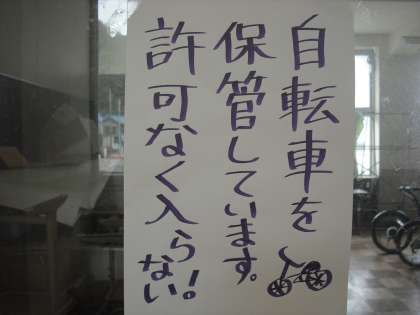 自転車を
保管しています。
許可なく入らない!